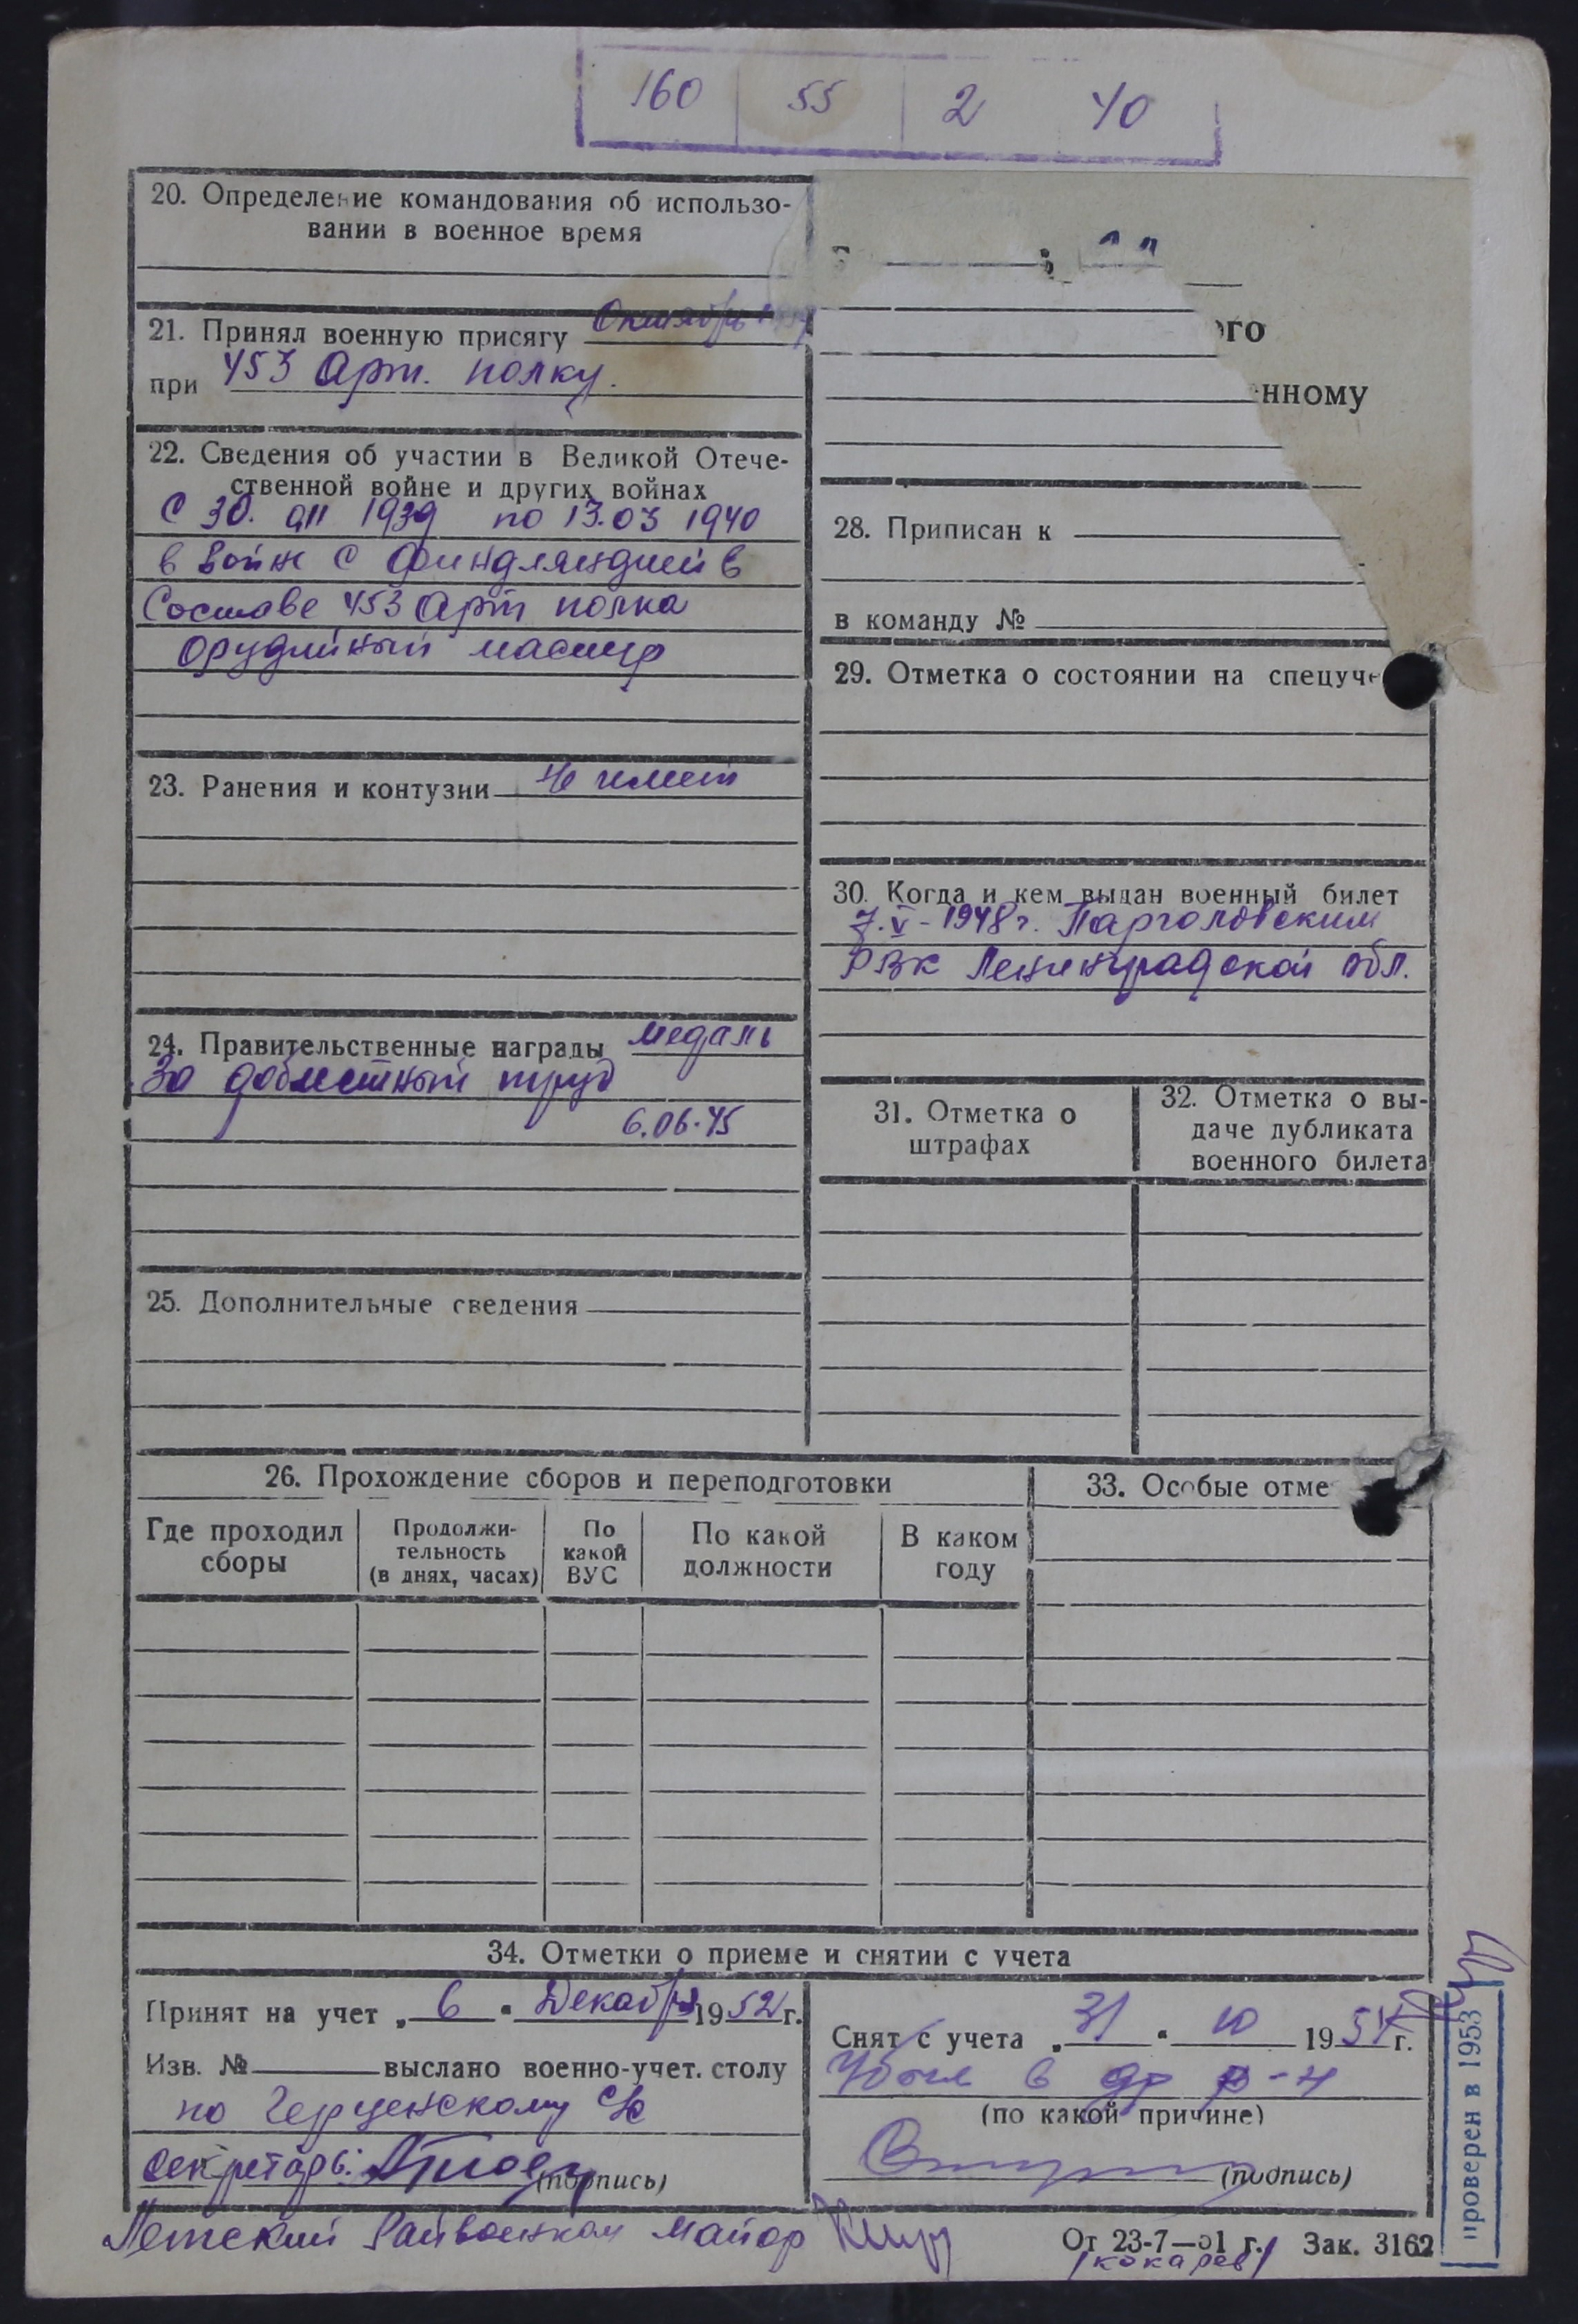 160 55 2 40
20. Определение командования об использо-
вании в военное время
21. Принял военную присягу Октябрь
при 453 Арт. полку.
22. Сведения об участии в Великой Отече-
ственной войне и других войнах
С 30. 011 1939 по 13.03 1940
в войне с Финдляндией в
Составе 453 Арт полка
орудийный мастер
23. Ранения и контузии Не имеет
24. Правительственные награды медаль
За доблестный труд
6.06.45
25. Дополнительные сведения
ого
нному
28. Приписан к
в команду №
29. Отметка о состоянии на спецуче
30. Когда и кем выдан военный билет
7.V-1948г. Парголовским
РВК Ленинградской обл.
31. Отметка о
штрафах
32. Отметка о вы-
даче дубликата
военного билета
26. Прохождение сборов и переподготовки
Где проходил
сборы
Продолжи-
тельность
(в днях, часах)
По
какой
ВУС
По какой
должности
В каком
году
33. Особые отме
34. Отметки о приеме и снятии с учета
Принят на учет „ 6 " Декабря 1952 г.
Изв. № выслано военно-учет. столу
по Герценскому с/с
секретарь:
(подпись)
Снят с учета „ 31 " 10 1954 г.
Убыл в др р-н
(по какой причине)
(подпись)
Райвоенком Майор
/кокарев/
От 23-7—51 г. Зак. 3162
проверен в 1953